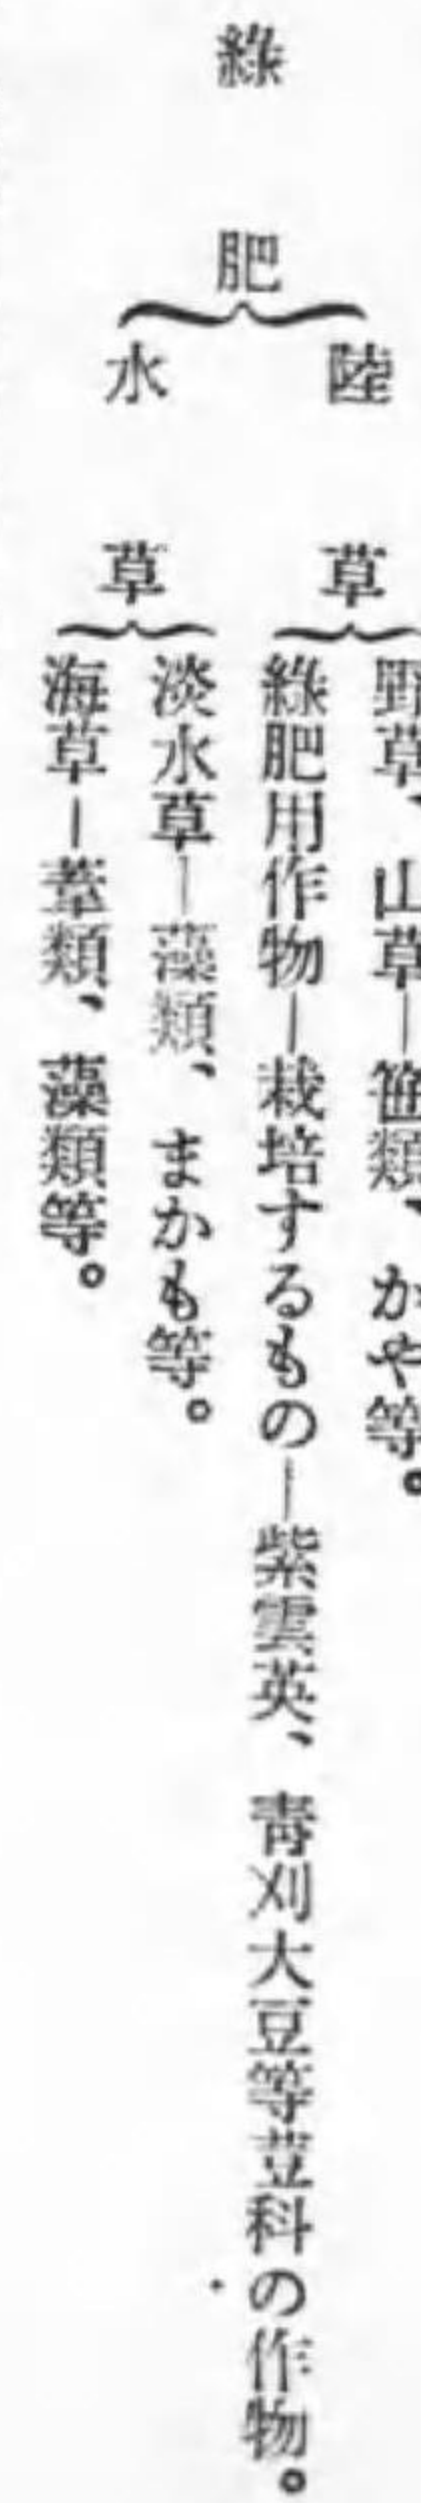 綠肥
陸草
野草、山草―笹類、かや等。
綠肥用作物―栽培するもの―紫雲英、靑刈大豆等荳科の作物。
水草
淡水草―藻類、まかも等。
海草―葦類、藻類等。